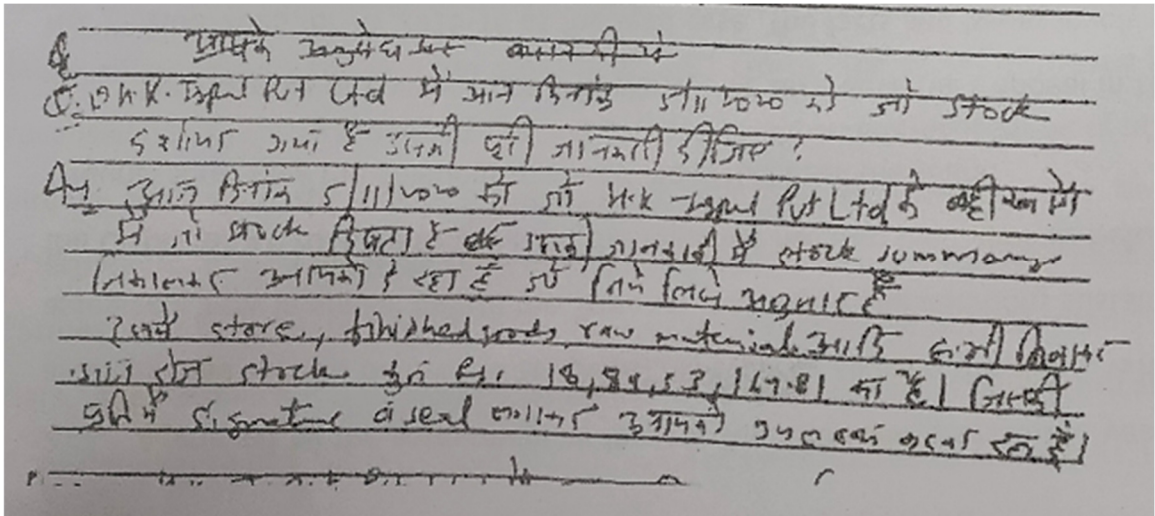 आपके अनुरोध पर
Q. H.K. Ispat Pvt Ltd में आज दिनांक 5/11/2020 को जो Stock
दर्शाया गया है उसकी पूरी जानकारी दीजिए?
Ans आज दिनांक 5/11/2020 को जो H.K Ispat Pvt Ltd के बही खातों
में जो stock दिखता है उसकी जानकारी में stock summary
निकालकर आपको दे रहा हूँ जो निम्नलिखित अनुसार है
इसमें store, finished goods, raw material आदि सभी मिलाकर
आज रोज stock कुल Rs. का है। जिसकी
प्रति में signature व seal लगाकर आपको उपलब्ध करवा रहा हूँ।